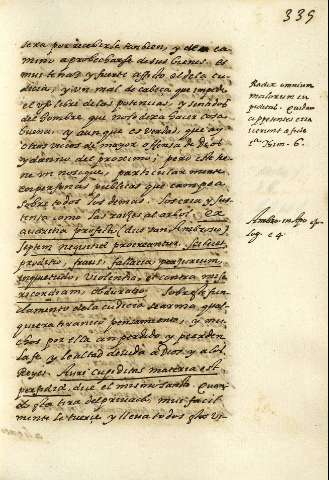 335
sera por recebirle tambien, y de en ca
mino aprobecharse de sus bienes. es
muy tenaz y fuerte affecto el de la cu
dicia, y un mal de cabeça que impide
el uso libre de las potencias, y sentidos
del hombre, que no se dexa hacer cosas
buena. y aunque es verdad, que ay
otros vicios de mayor offensa de Dios
y daño del proximo, pero este tie
ne un no se que, particular mente
con personas publicas que campea
sobre todos los demas. los cria y sus-
tenta como las raizes al arbol. Ex
avaritia profecto (dice san Ambrosio)
septem nequitiæ procreantur. scilicet
proditio, fraus, fallatia periurium,
inquietudo, violentia, et contra mise
ricordiam obduratio. Sobre el fun
damento de la cudicia se arma qual-
quiera tiranico pensamiento, y mu
chos por ella an perdido y pierden
la fe y lealtad devida a Dios y a los
Reyes. Auri cupiditas materia est
perfidiæ, dice el mismo santo. Quan
do ella tira del privado, muy facil
mente le tuerce y lleva todos ellos vi-
Radix omnium
malorum cu
piditas. Quidam
appetentes erra
verunt a fide
1ª Tim. 6.
Ambro. in Apo
c. 4